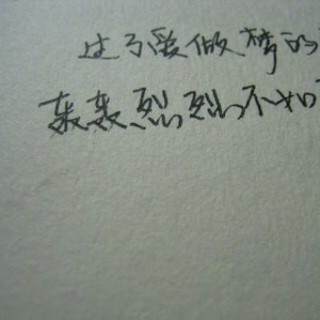 过了爱做梦的
轰轰烈烈不如